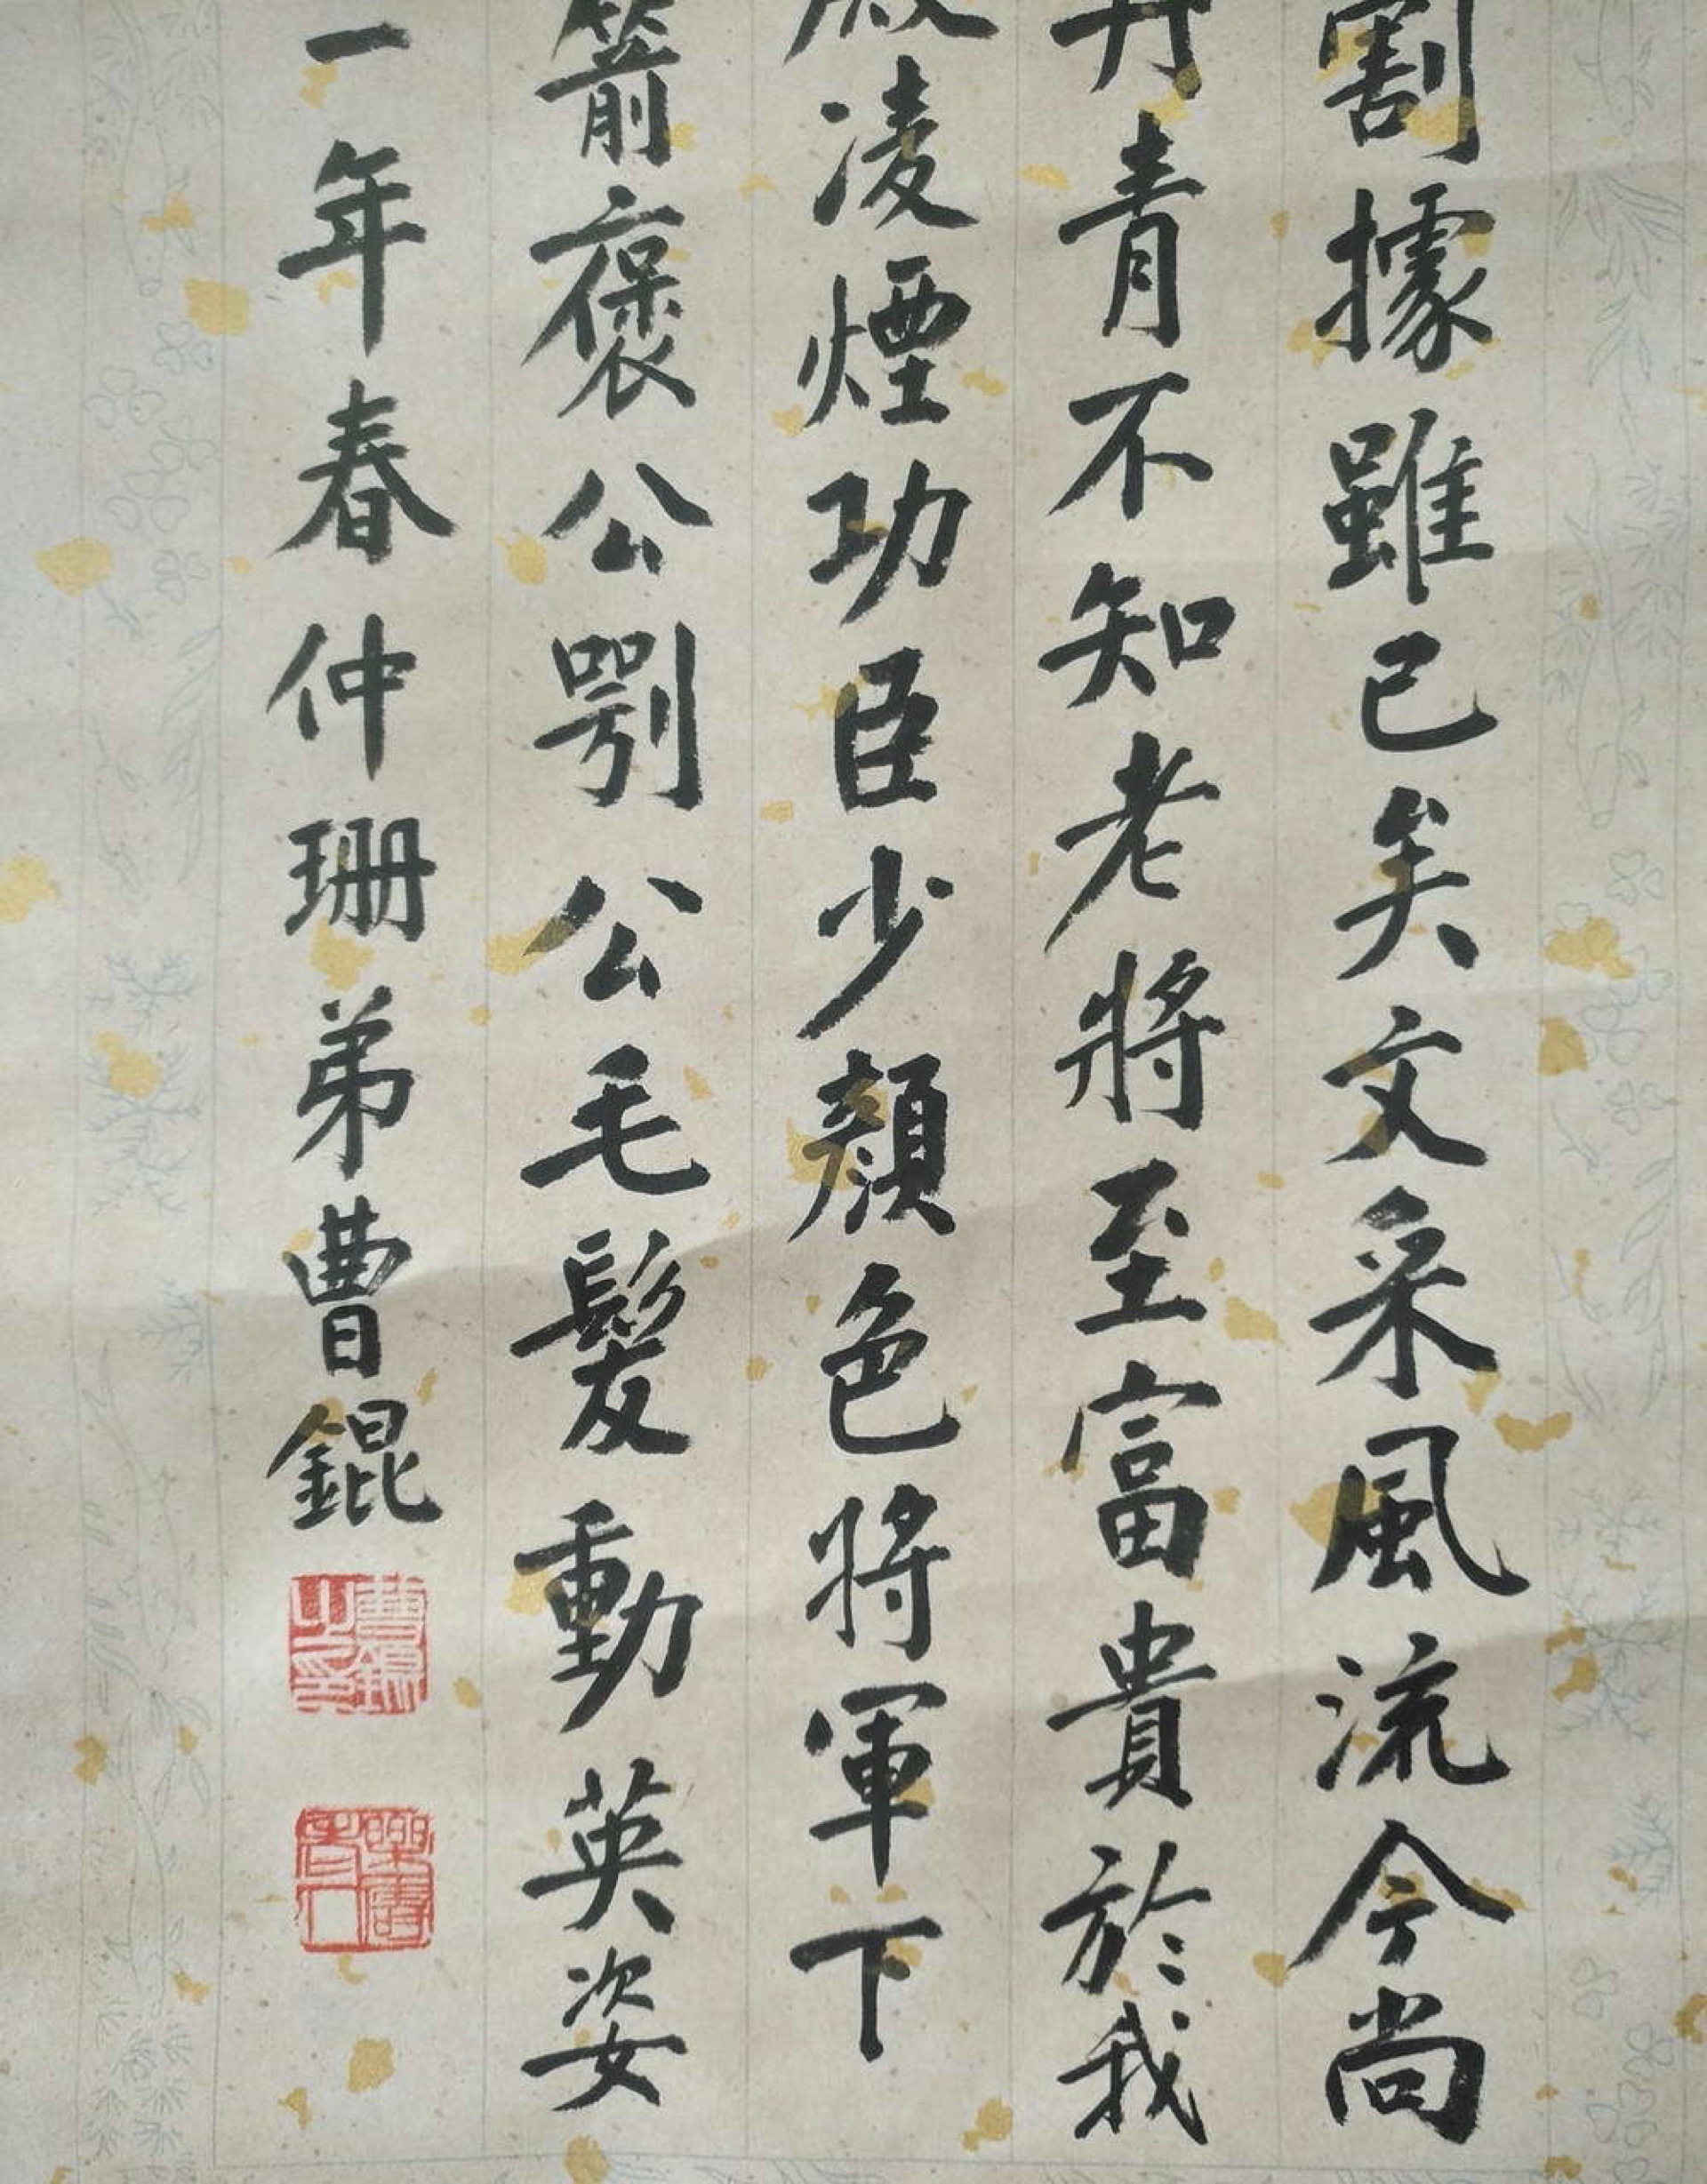 割據雖已矣文采風流今尚
丹青不知老將至富貴於我
殿凌煙功臣少顏色將軍下
箭褒公鄂公毛髮動英姿
一年春仲珊弟曹錕
曹錕之印
樂壽老人